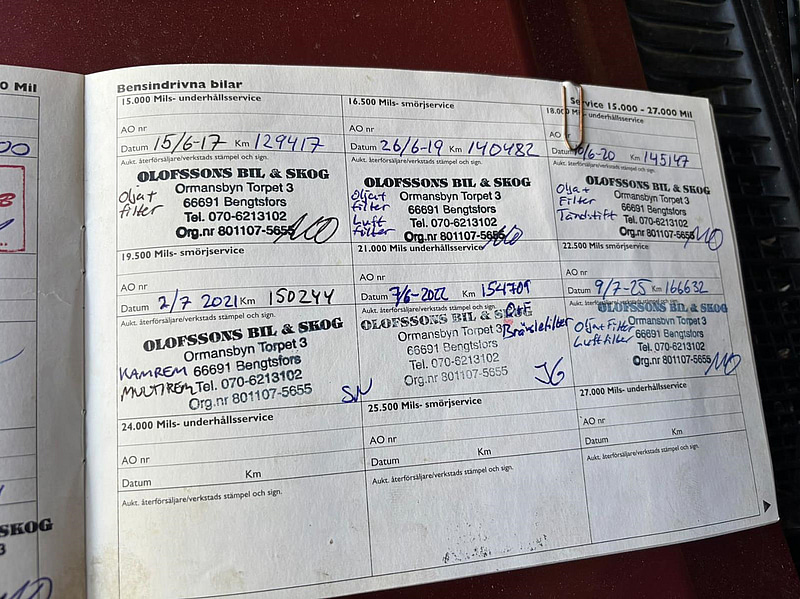 0 Mil
Bensindrivna bilar
Service 15.000 - 27.000 Mil
15.000 Mils- underhållsservice
AO nr
Datum 15/6-17 Km 129417
Aukt. återförsäljare/verkstads stämpel och sign.
OLOFSSONS BIL & SKOG
Ormansbyn Torpet 3
66691 Bengtsfors
Tel. 070-6213102
Org.nr 801107-5655
Olja+
filter
16.500 Mils- smörjservice
AO nr
Datum 26/6-19 Km 140482
Aukt. återförsäljare/verkstads stämpel och sign.
OLOFSSONS BIL & SKOG
Ormansbyn Torpet 3
66691 Bengtsfors
Tel. 070-6213102
Org.nr 801107-5655
Olja+
filter
Luft
filter
underhållsservice
AO nr
Datum /6-20 Km 145147
Aukt. återförsäljare/verkstads stämpel och sign.
OLOFSSONS BIL & SKOG
Ormansbyn Torpet 3
66691 Bengtsfors
Tel. 070-6213102
Org.nr 801107-5655
Olja+
Filter
Tändstift
19.500 Mils- smörjservice
AO nr
Datum 2/7 2021 Km 150244
Aukt. återförsäljare/verkstads stämpel och sign.
OLOFSSONS BIL & SKOG
Ormansbyn Torpet 3
66691 Bengtsfors
Tel. 070-6213102
Org.nr 801107-5655
KAMREM
MULTIREM
SN
21.000 Mils- underhållsservice
AO nr
Datum 7/6-2022 Km 154709
Aukt. återförsäljare/verkstads stämpel och sign.
OLOFSSONS BIL & SKOG
Ormansbyn Torpet 3
66691 Bengtsfors
Tel. 070-6213102
Org.nr 801107-5655
Bränslefilter
JG
22.500 Mils- smörjservice
AO nr
Datum 9/7-25 Km 166632
Aukt. återförsäljare/verkstads stämpel och sign.
OLOFSSONS BIL & SKOG
Ormansbyn Torpet 3
66691 Bengtsfors
Tel. 070-6213102
Org.nr 801107-5655
Olja+Filter
Luftfilter
24.000 Mils- underhållsservice
AO nr
Datum Km
Aukt. återförsäljare/verkstads stämpel och sign.
25.500 Mils- smörjservice
AO nr
Datum Km
Aukt. återförsäljare/verkstads stämpel och sign.
27.000 Mils- underhållsservice
AO nr
Datum Km
Aukt. återförsäljare/verkstads stämpel och sign.
SKOG
3